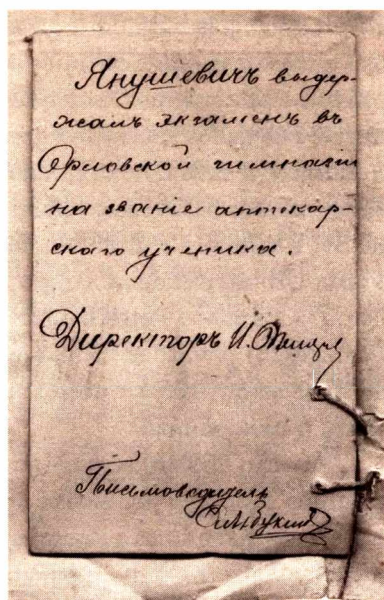 Янушевичъ выдер-
жалъ экзаменъ въ
Орловской гимназiи
на званiе аптекар-
скаго ученика.
Директоръ И.
Письмоводитель